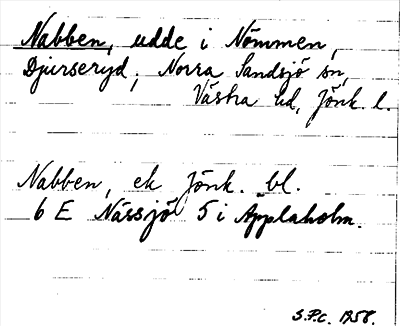 Nabben, udde i Nömmen,
Djurseryd, Norra Sandsjö sn,
Västra hd, Jönk. l.
Nabben, ek Jönk. bl.
6 E Nässjö 5 i Äpplaholm.
S.P.C. 1958.